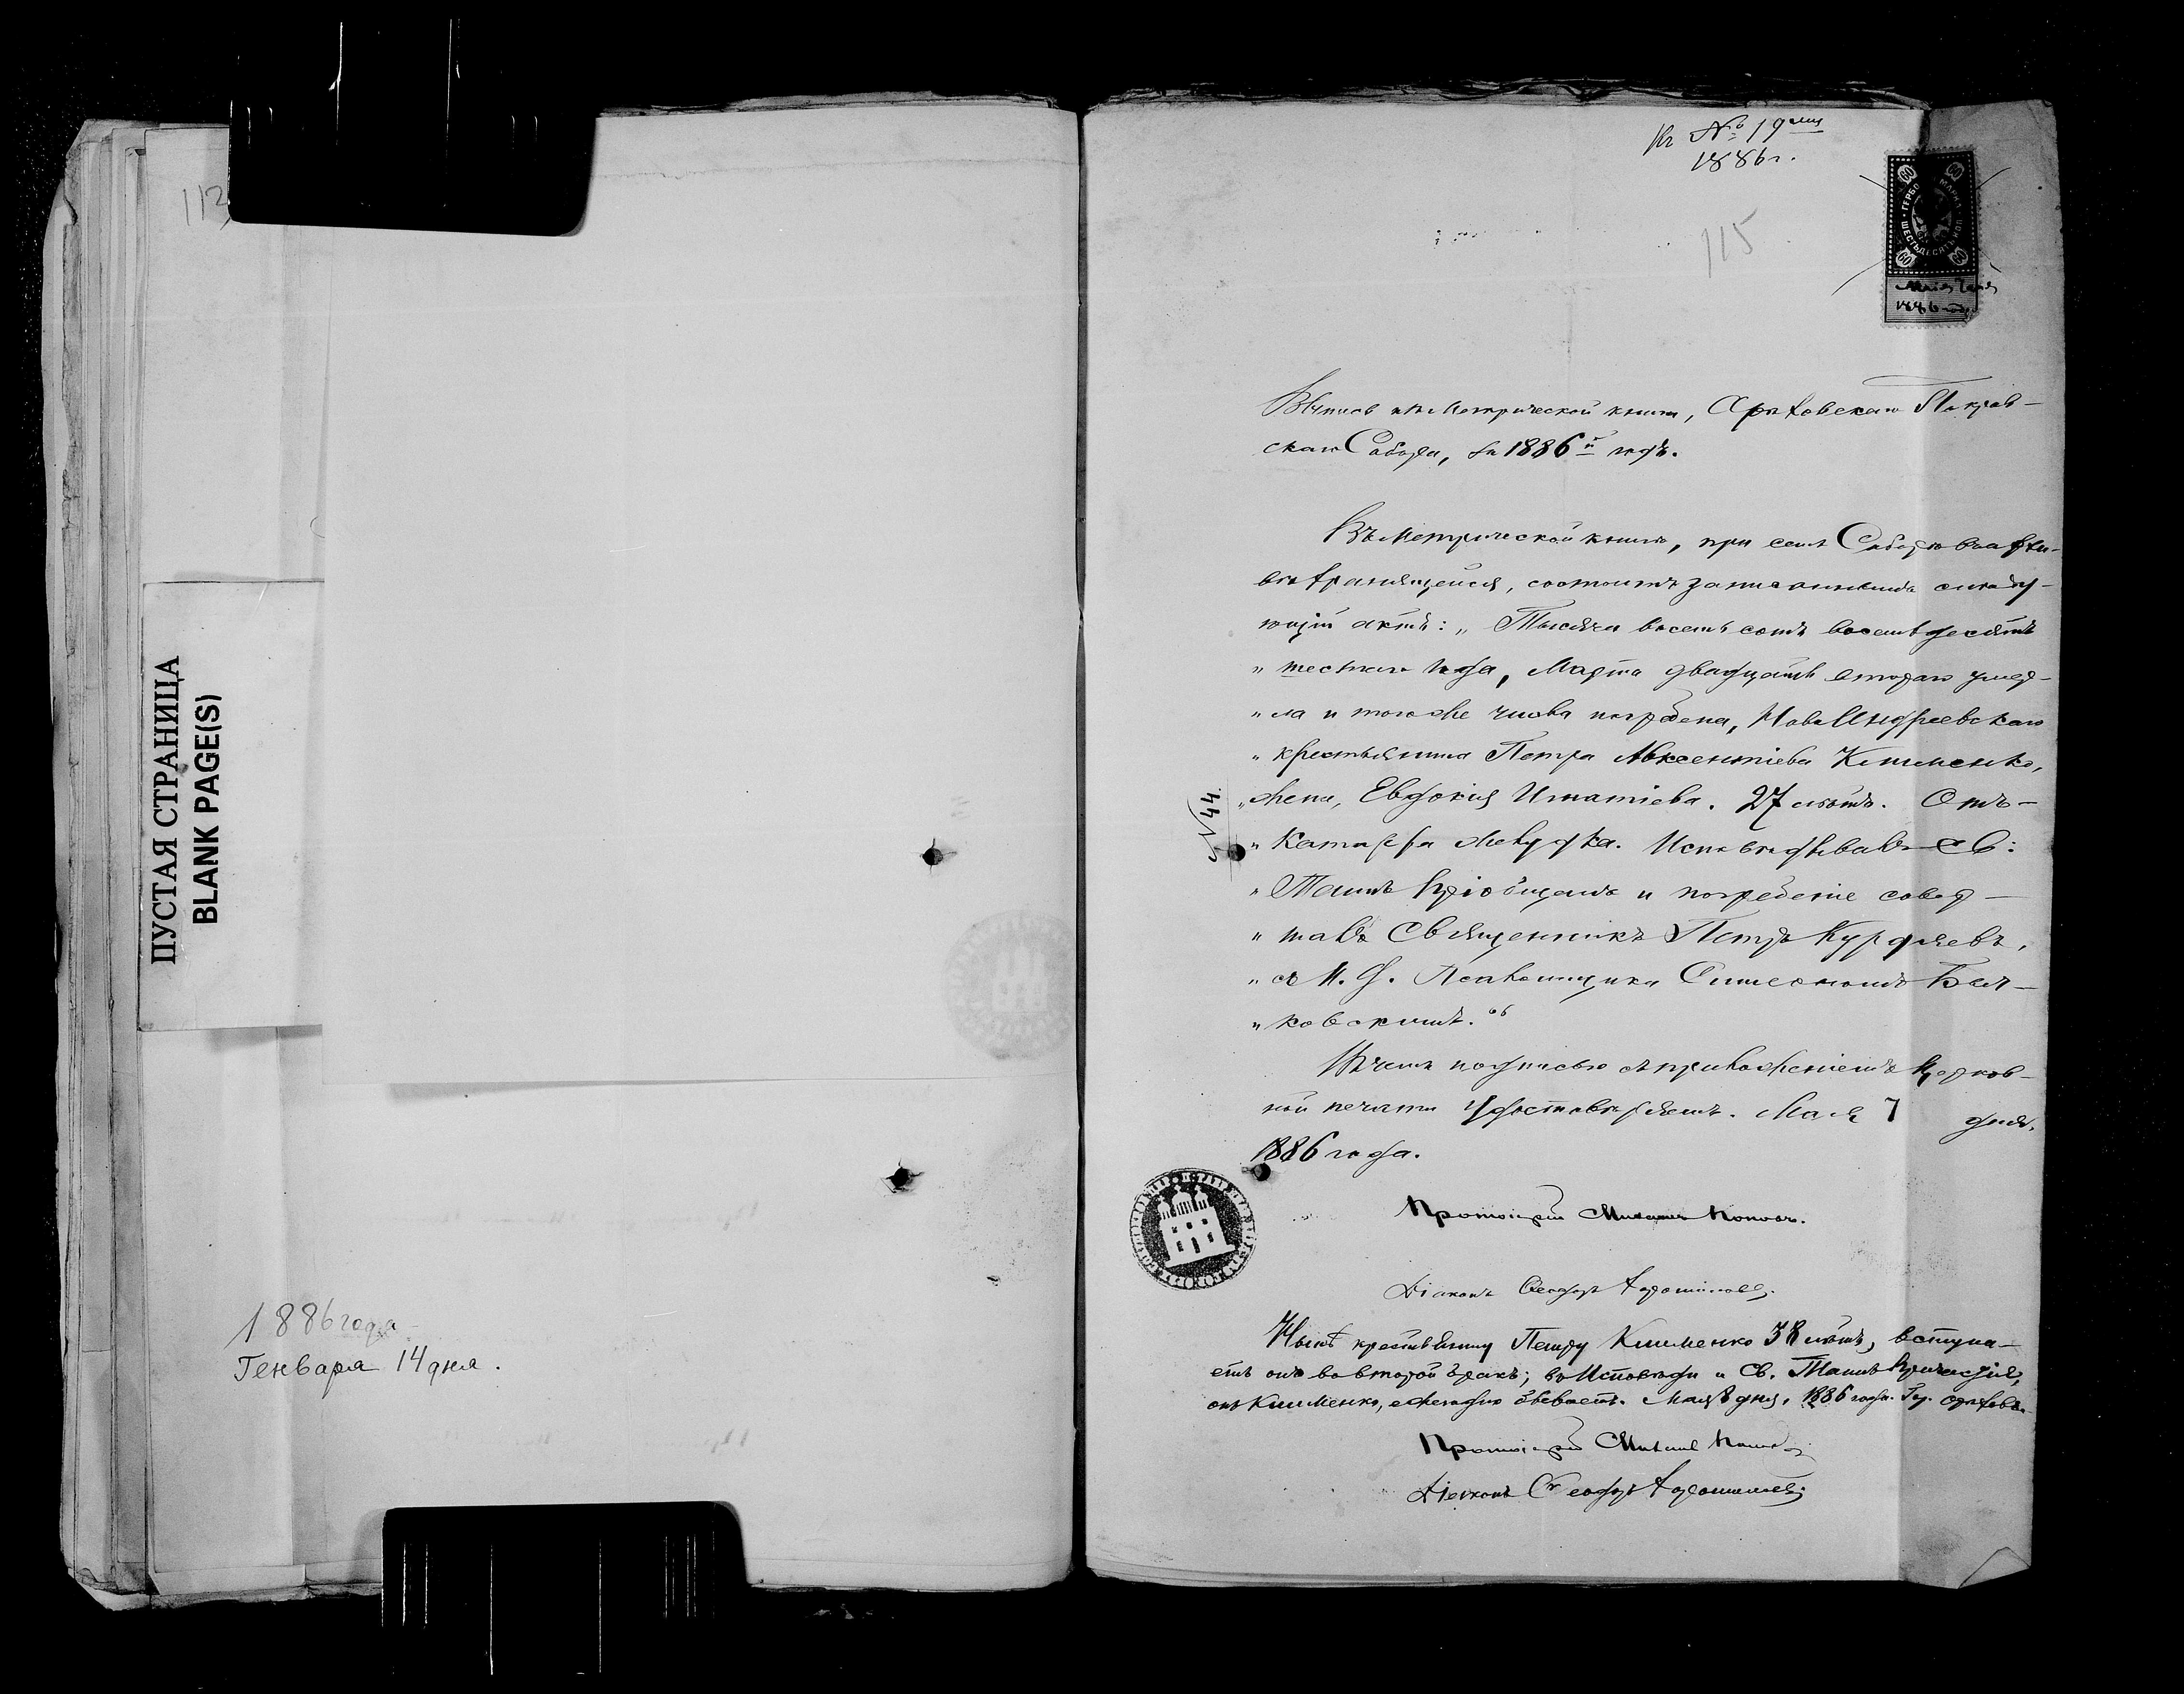 112
ПУСТАЯ СТРАНИЦА
BLANK PAGE(S)
1886 года
Генваря 14 дня.
Къ № 19
1886 г.
115
60 60
ГЕРБО МАРКА
ШЕСТЬДЕСЯТЪ КОП
60 60
Маія 7 дня
1886 года
Выпись изъ Метрической книги, Орѣховскаго Покров-
скаго Собора, за 1886й годъ.
Въ Метрической книгѣ, при семъ Соборѣ въ архи-
вѣ хранящейся, состоитъ записаннымъ слѣду-
ющій актъ: „Тысяча восемь сотъ восемьдесятъ
„шестаго года, Марта двадцать втораго умер-
„ла и того же числа погребена, НовоАндреевскаго
„крестьянина Петра Авксентіева Клименко,
№ 44.
„жена, Евдокія Игнатіева. 27 лѣтъ. Отъ
„Катарра желудка. Исповѣдывалъ Св:
„Таинъ пріобщалъ и погребеніе совер-
„шалъ Священникъ Петръ Курдяевъ,
„съ И. Д. Псаломщика Симеономъ Бѣл-
„ковскимъ.“
Въ чемъ подписью съ приложеніемъ Церков-
ной печати удостовѣряемъ. Маія 7 дня.
1886 года.
Протоіерей Михаилъ Поповъ.
Діаконъ Ѳеодоръ
Нынѣ крестьянину Петру Клименко 38 лѣтъ, вступа-
етъ онъ во второй бракъ; въ Исповѣди и Св. Таинъ Причастія,
онъ Клименко, ежегодно бываетъ. Маія 8 дня, 1886 года. Гор. Орѣховъ.
Протоіерей Михаилъ Поповъ
Діаконъ Ѳеодоръ